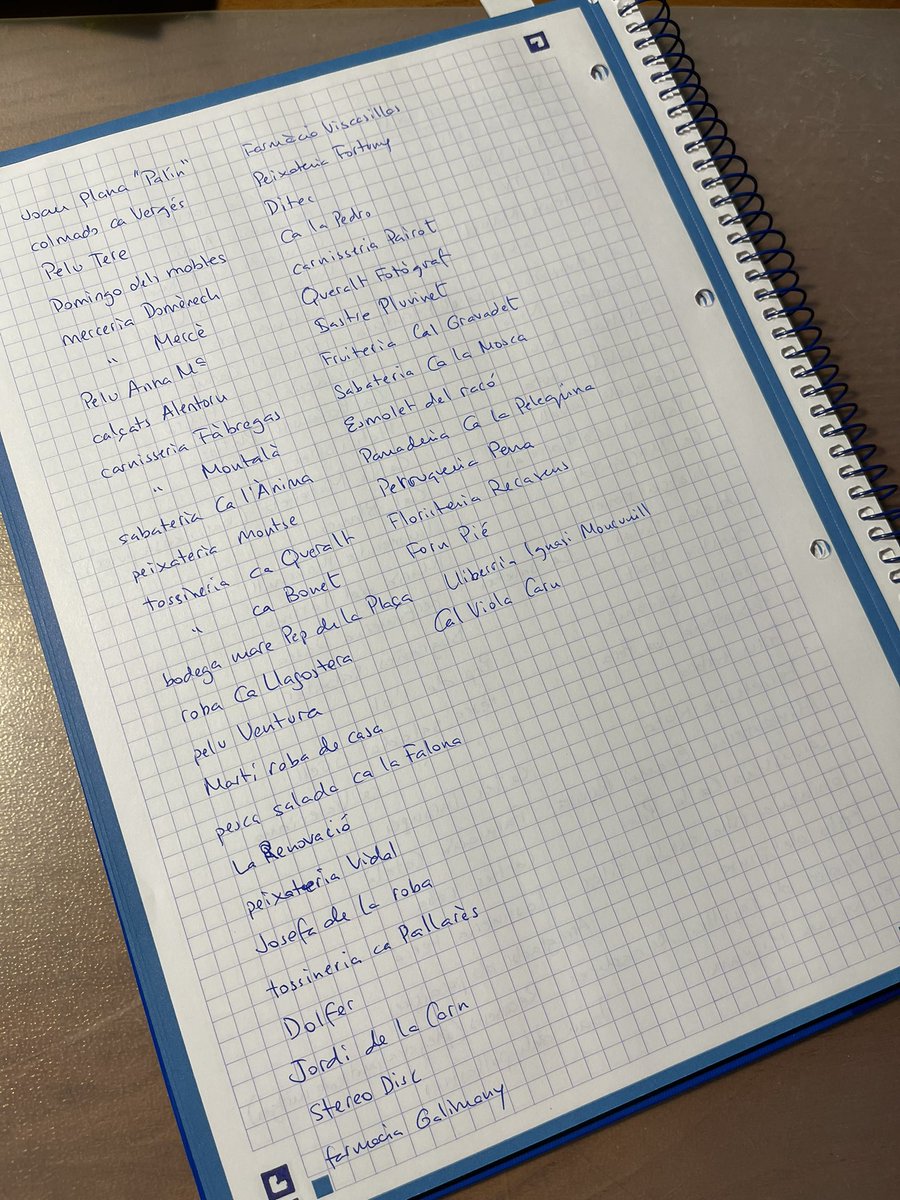 Joan Plana "Palín"
colmado ca Vergés
Pelu Tere
Domingo dels mobles
merceria Domènech
" Mercè
Pelu Anna Mª
calçats Alentorn
carnisseria Fàbregas
" Montalà
sabateria Ca l'Ànima
peixateria Montse
tossineria ca Queralt
" ca Bonet
bodega mare Pep de la Plaça
roba Ca Llagostera
pelu Ventura
Martí roba de casa
pesca salada ca la Falona
La Renovació
peixateria Vidal
Josefa de la roba
tossineria ca Pallarès
Dolfer
Jordi de la Carn
Stereo Disc
farmacia Galimany
Farmàcia Viscasillas
Peixateria Fortuny
Ditec
Ca la Pedro
carnisseria Pairot
Queralt Fotògraf
Sastre Pluvinet
Fruiteria Cal Gravadet
Sabateria Ca la Mosca
Esmolet del racó
Panaderia Ca la Pelegrina
Perruqueria Pena
Floristeria Recasens
Forn Pié
Llibreria Ignasi
Cal Viola Carn